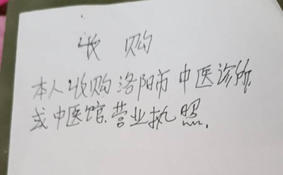 收购
本人收购洛阳市中医诊所
或中医馆.营业执照.